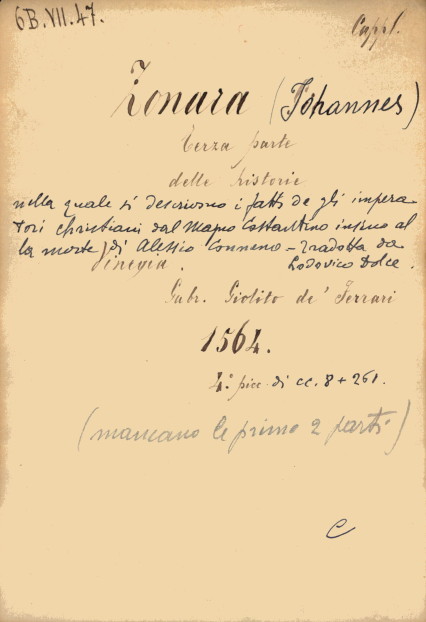 6B.VII.47.
Cappl.
Zonara (Johannes)
Terza parte
delle historie
nella quale si descrivono i fatti de gli impera
tori christiani dal Magno Costantino insino al
la morte di Alessio Conneno – Tradotta da
Vinegia. Lodovico Dolce.
Gabr. Giolito de' Ferrari
1564.
4.° picc. di cc. 8 + 261.
(mancano le prime 2 parti)
C